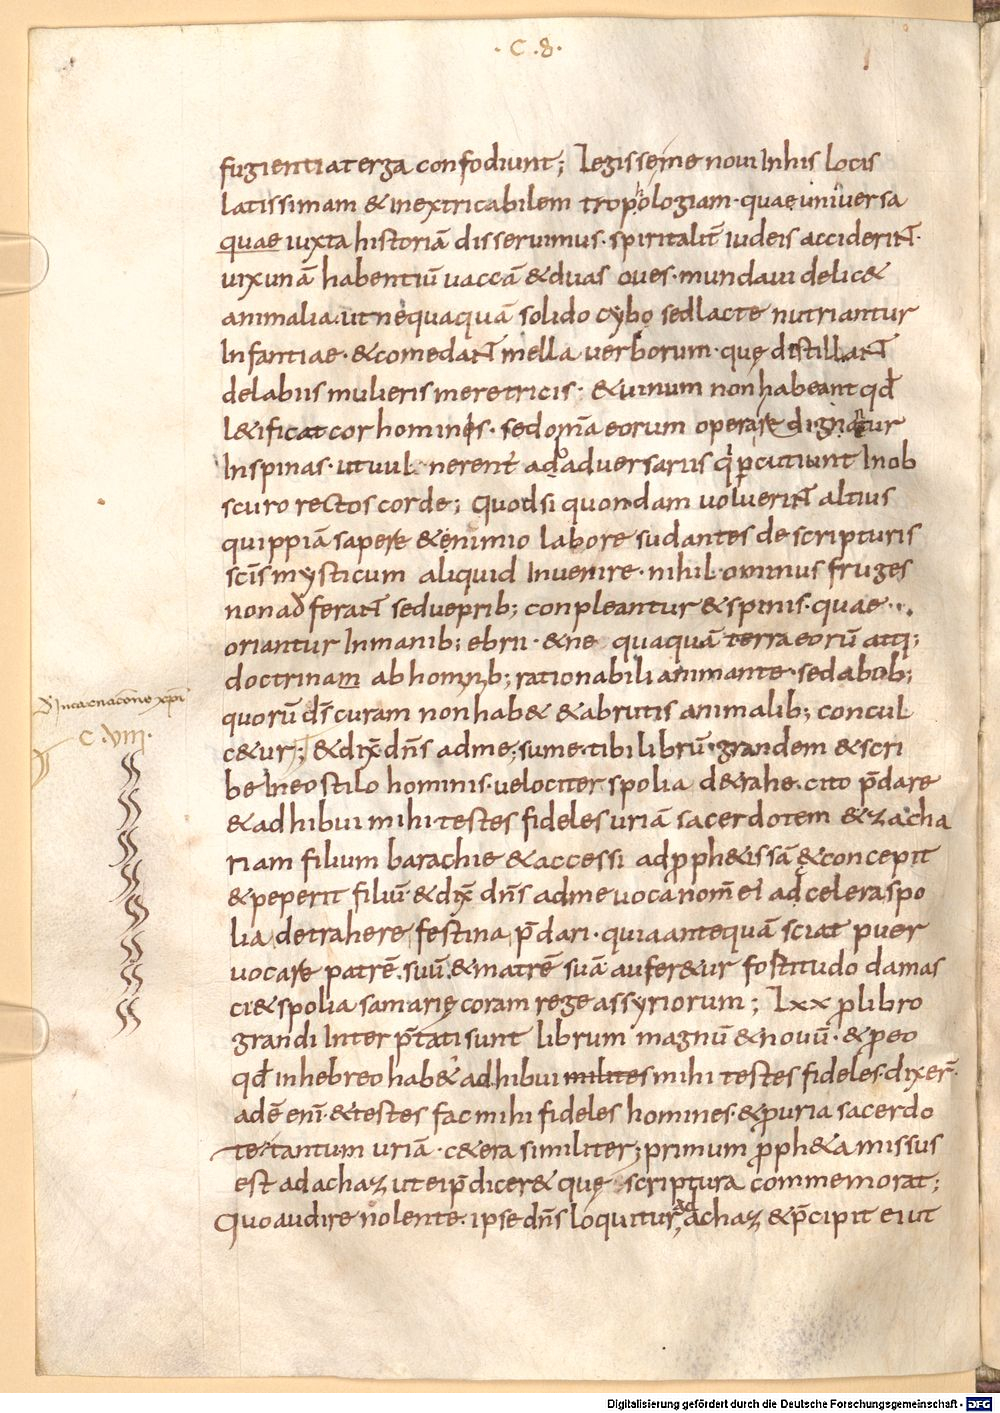 · C · 8 ·
fugienti a terga confodiunt; Legisse me noui Inhis locis
latissimam & inextricabilem tropologiam · quae uniuersa
quae iuxta historiā disseruimus · spiritalit̄ iudeis acciderint̄ ·
uix unā habentiū uaccā & duas oues · mundaui delic&
animalia ut nequaquā solido cybo sed lacte nutriantur
Infantiae · & comedant mella uerborum · quę distillant
delabiis mulieris meretricis · & uinum non habeant qđ
l&ificat cor hominis · sed om̄a eorum operatr dignatur
Inspinas · ut uul nerent aduersariis q percutiunt In ob
scuro rectos corde; Quodsi quondam uoluerint altius
quippiā sapere & enimio labore sudantes de scripturis
scīs mysticum aliquid Inuenire · nihil ominus fruges
non adferant sed ueprib; conpleantur & spinis · quae
oriantur Inmanib; ebrii · & ne quaquā terra eorū atq;
doctrinam ab hominib; rationabili animante · sed abub;
quorū d̄s curam non hab& & abrutis animalib; concul
c&ur; & dix̄ dn̄s ad me; sume · tibi librū · grandem & scri
be Ineo stilo hominis · uelociter spolia d&rahe · cito p̄dare
& adhibui mihi · testes fideles uriā sacerdotem & zacha
riam filium barachie & accessi ad proph&issā & concepit
& peperit filiū · & dix̄ dn̄s ad me uoca nom̄ ei adcelera spo
lia detrahere festina p̄dari · quia antequā sciat puer
uocare patrē suū & matrē suā aufer&ur fostitudo damas
ci & spolia samarię coram rege assyriorum; Lxx p libro
grandi Inter p̄tati sunt librum magnū & nouū · & p eo
qđ in hebreo hab& adhibui milites mihi testes fideles · dixer̄ ·
adē enī · & testes fac mihi fideles homines · & puria sacerdo
te · tantum uriā · c&era similiter; primum proph&a missus
est ad achaz ut ei p̄dicer& quę scriptura commemorat;
Quo audire nolente · ipse dn̄s loquitur ad achaz & p̄cipit ei ut
d' Incarnacōne xp̄i
C · VIII ·